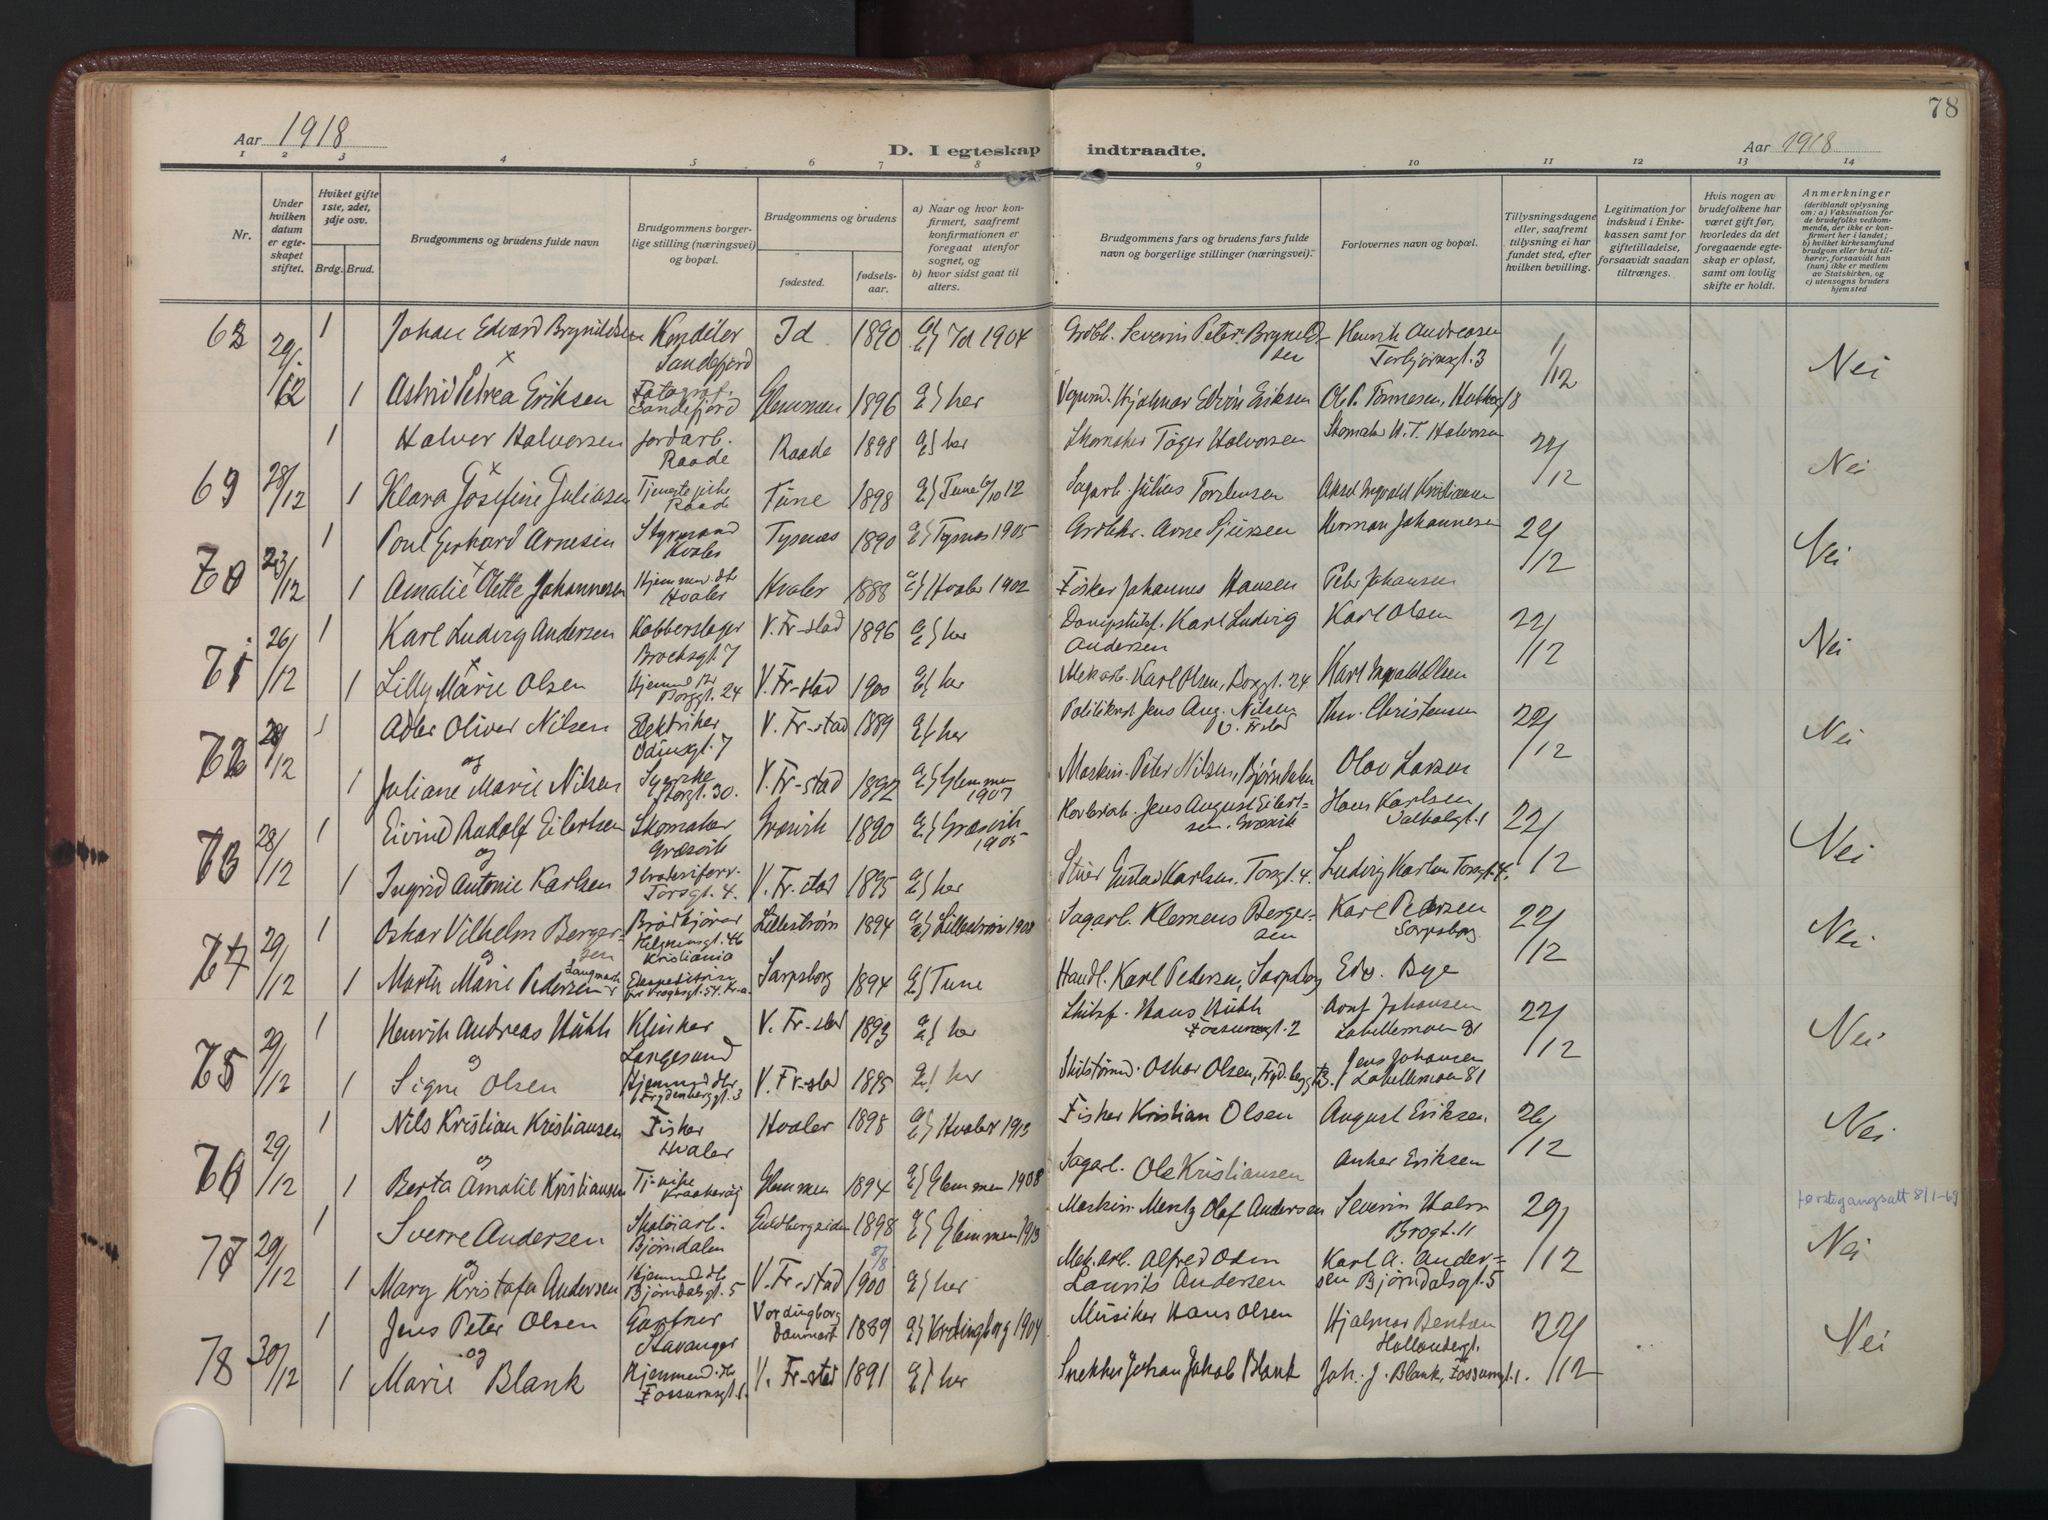 78
Aar 1918
D. I egteskap indtraadte.
Aar 1918
1 2 3 4 5 6 7 8 9 10 11 12 13 14
Nr.
Under hvilken datum er egteskapet stiftet.
Hviket gifte 1ste, 2det, 3dje osv.
Brdg. Brud.
Brudgommens og brudens fulde navn
Brudgommens borgerlige stilling (næringsvei) og bopæl.
Brudgommens og brudens
fødested. fødselsaar.
a) Naar og hvor konfirmert, saafremt konfirmationen er foregaat utenfor sognet, og
b) hvor sidst gaat til alters.
Brudgommens fars og brudens fars fulde navn og borgerlige stillinger (næringsvei).
Forlovernes navn og bopæl.
Tillysningsdagene eller, saafremt tillysning ei har fundet sted, efter hvilken bevilling.
Legitimation for indskud i Enkekassen samt for giftetilladelse, forsaavidt saadan tiltrænges.
Hvis nogen av brudefolkene har været gift før, hvorledes da det foregaaende egteskap er opløst, samt om lovlig skifte er holdt.
Anmerkninger (deriblandt oplysning om: a) Vaksination for de brudefolks vedkommende, der ikke er konfirmert her i landet; b) hvilket kirkesamfund brudgom eller brud tilhører, forsaavidt han (hun) ikke er medlem av Statskirken, og c) utensogns bruders hjemsted
1 Johan Edvard Brynildsen Konditer Sandefjord Id 1890 a) Id 1904 Severin Peter Brynildsen Henrik Andreasen Torbjørnsgt. 3 1/12 Nei
1 Astrid Petrea Eriksen Fotograf. Sandefjord Glemmen 1896 her Hjalmar Edvin Eriksen Ole P. Tønnesen
1 Halvor Halvorsen Jordarb. Raade Raade 1898 her Skomaker Halvorsen Skomaker Halvorsen 22/12 Nei
69 28/12 1 Klara Josefine Juliasen Tjenestepike Raade Tune 1898 Tune 12 Sagarb. Julius Torstensen Aksel Ingvald Kristiansen
1 Poul Gerhard Arnesen Styrmand Hvaler Tysnes 1890 Tysnes 1905 Arne Sjursen Herman Johannesen 22/12 Nei
70 23/12 1 Amalie Olette Johannesen Hjemmev. dtr Hvaler Hvaler 1888 Hvaler 1902 Fisker Johannes Hansen Peter Johansen
71 26/12 1 Karl Ludvig Andersen Kobberslager Brochsgt. 7 V. Fr-stad 1896 her Karl Ludvig Andersen Karl Olsen 22/12 Nei
1 Lilly Marie Olsen Borggt. 24 V. Fr-stad 1900 her Mek.arb. Karl Olsen, Borggt. 24 Karl Ingvald Olsen
72 28/12 1 Adler Oliver Nilsen Elektriker Odinsgt. 7 V. Fr-stad 1889 her Jens Aug. Nilsen V. Frstad Thv. Christensen 22/12 Nei
og
1 Juliane Marie Nilsen Syerske 30. V. Fr-stad 1892 Glemmen 1907 Maskin. Peter Nilsen, Bjørndalen Olav Larsen
73 28/12 1 Eivind Rudolf Eilertsen Skomaker Græsvik Græsvik 1890 Græsvik 1905 Jens August Eilertsen. Græsvik Hans Karlsen 22/12 Nei
og
1 Ingrid Antonie Karlsen Torsgt. 4. V. Fr. stad 1895 her Gustav Karlsen, Torsgt. 4. Ludvig Karlsen Torsgt. 4.
74 29/12 1 Oskar Vilhelm Bergersen Brødkjører Kristiania Lillestrøm 1894 Lillestrøm 1908 Sagarb. Klemens Bergersen Karl Pedersen Sarpsborg 22/12 Nei
og
1 Marta Marie Pedersen Sarpsborg 1894 Tune Handl. Karl Pedersen, Sarpsborg Edv. Bye
75 29/12 1 Henrik Andreas Hüth Klinker Langesund V. Fr-stad 1893 her Skibsf. Hans Hüth Fossumsgt. 2 Arnf Johansen Labellemoen 81 22/12 Nei
og
1 Signe Olsen Hjemmev. dtr Frydenberggt. 3 V. Fr-stad 1895 her Oskar Olsen, Jens Johansen Labellemoen 81
76 29/12 1 Nils Kristian Kristiansen Fisker Hvaler Hvaler 1895 Hvaler 1913 Fisker Kristian Olsen August Eriksen 26/12 Nei
og
1 Berta Amalie Kristiansen Tj.-pike Kraakerøy Glemmen 1894 Glemmen 1908 Sagarb. Ole Kristiansen Anker Eriksen
førstegangsatt 8/1-69
77 29/12 1 Sverre Andersen Skotøiarb. Bjørndalen Guldbergsiden 1898 Glemmen 1913 Maskin. Mentz Olaf Andersen Severin Holm Brogt. 11 29/12 Nei
og
1 Mary Kristofa Andersen Hjemmev. dtr Bjørndalsgt. 5 V. Fr-stad 8/8 1900 her Mek.arb. Alfred Odin Laurits Andersen Karl A. Andersen Bjørndalsgt. 5
78 30/12 1 Jens Peter Olsen Gartner Stavanger Vordingborg Danmark 1889 Vordingborg 1904 Musiker Hans Olsen Hjalmar Bentzen Hollendergt. 22/12 Nei
og
1 Marie Blank Hjemmev. dtr Fossumsgt. 1 V. Fr-stad 1891 her Snekker Johan Jakob Blank Joh. J. Blank, Fossumgt. 1.